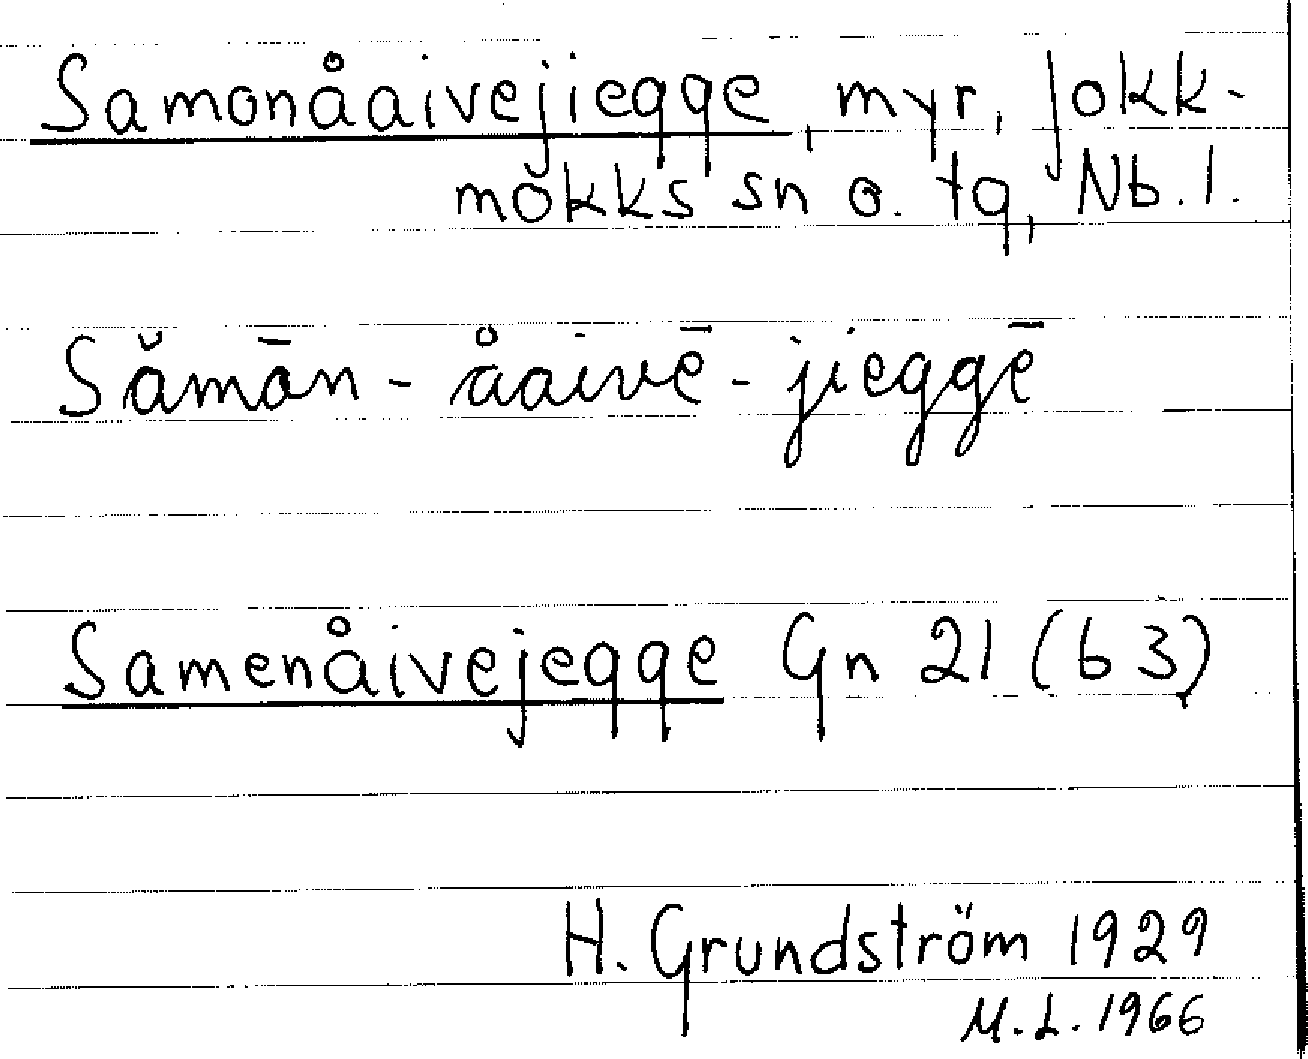 Samonåaivejiegge, myr, Jokk-
mokks sn o. tg, Nb. l.
Sămān - åaivē - jieggē
Samenåivejegge Gn 21 (b 3)
H. Grundström 1929
M. L. 1966